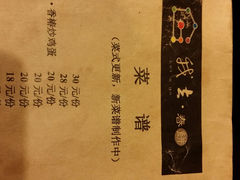 我去·春
菜 谱
（菜式更新，新菜谱制作中）
·香椿炒鸡蛋
30 元/份
28 元/份
20 元/份
20 元/份
20 元/份
18 元/份